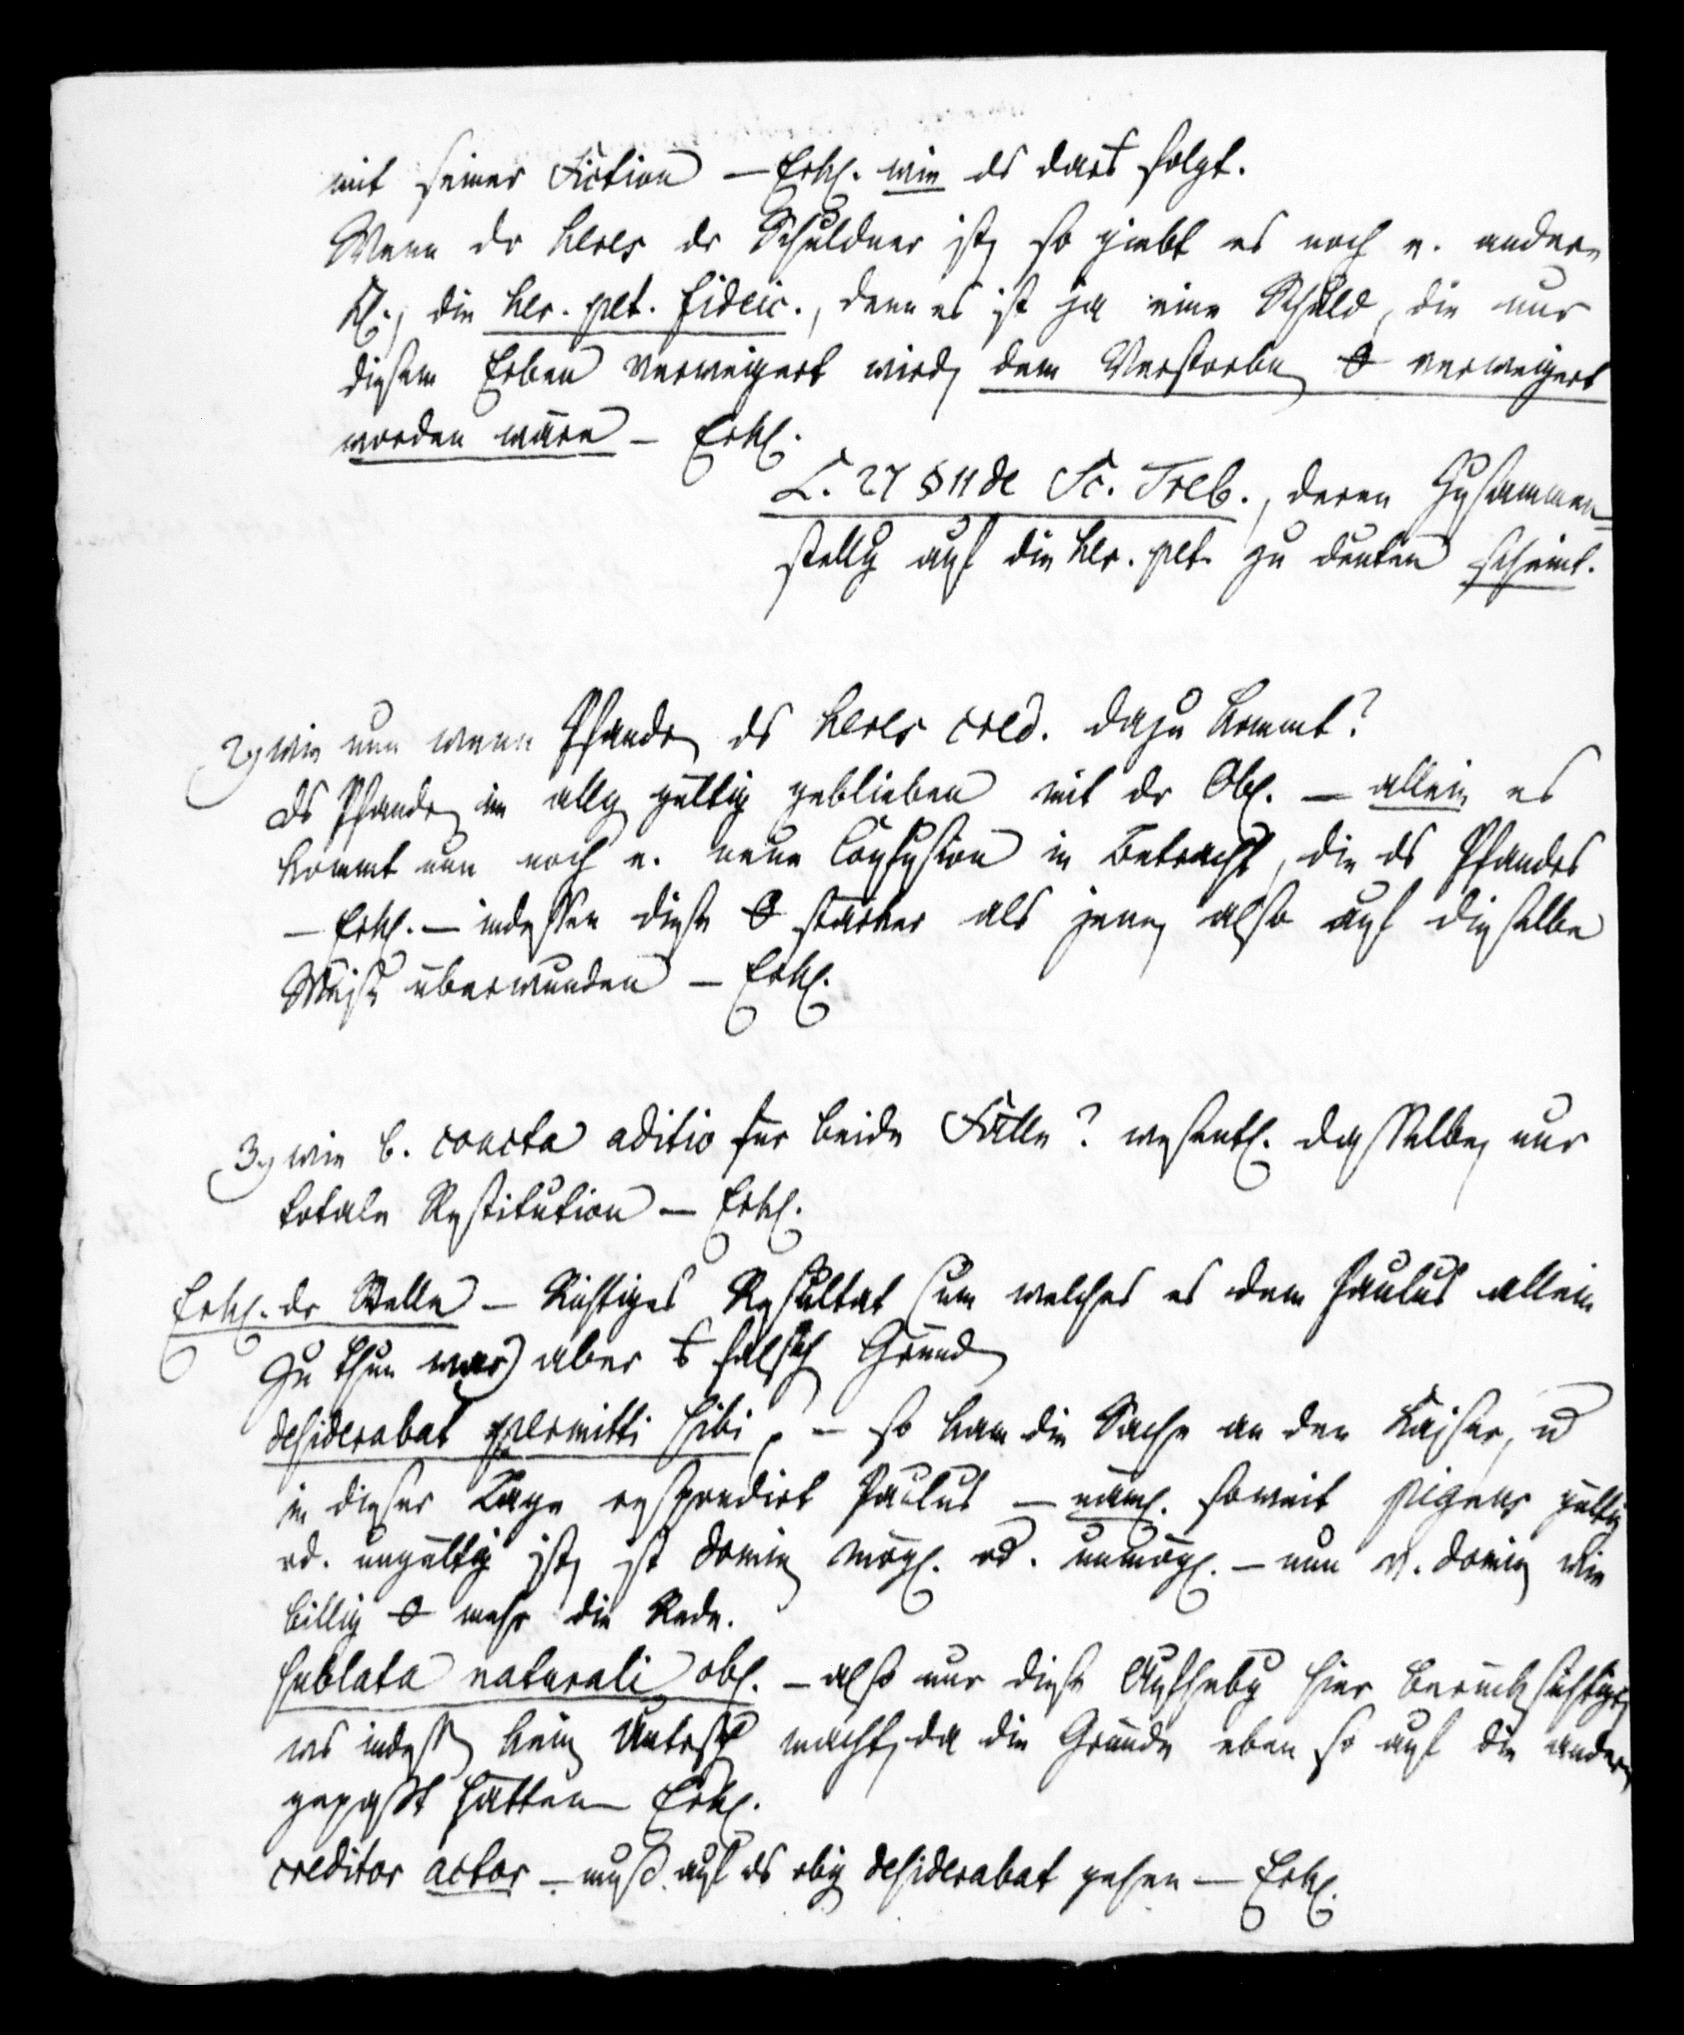 mit seiner Fiction — Erkl. wie ds dars folgt.
Wenn dr heres dr Schuldner ist, so giebt es noch e. andere
Kl., die her. pet. fideic., denn es ist ja eine Schuld, die nur
diesem Erben verweigert wird, dem Verstorbn θ verweigert
worden wäre — Erkl.
L. 27 § 11 de Sc. Treb., deren Zusammen-
stellg auf die her. pet. zu deuten scheint.
2) wie nun wenn Pfandr ds heres cred. dazu kommt?
ds Pfandr im allg gültig geblieben mit dr Obl. — allein es
kommt nun noch e. neue Confusion in Betracht, die ds Pfandes
— Erkl. — indessen diese θ stärker als jene, also auf dieselbe
Weise überwunden — Erkl.
3) wie b. coacta aditio für beide Fälle? wesentl. dasselbe, nur
totale Restitution — Erkl.
Erkl. dr Stelle — Richtiges Resultat (um welches es dem Paulus allein
zu thun war) aber falsch Grund
desiderabat permitti sibi, — so kam die Sache an den Kaiser, u
in dieser Lage respondirt Paulus — näml. soweit pignus gültig
od. ungültig ist, ist domin mögl. od. unmögl. — nun v. domin wie
billig θ mehr die Rede.
sublata naturali obl. — also nur diese Aufhebg hier berücksichtigt,
ws indess kein Untersch macht, da die Gründe eben so auf die andere
gepaßt hätten — Erkl.
creditor actor — muß auf ds obig desiderabat gehen — Erkl.